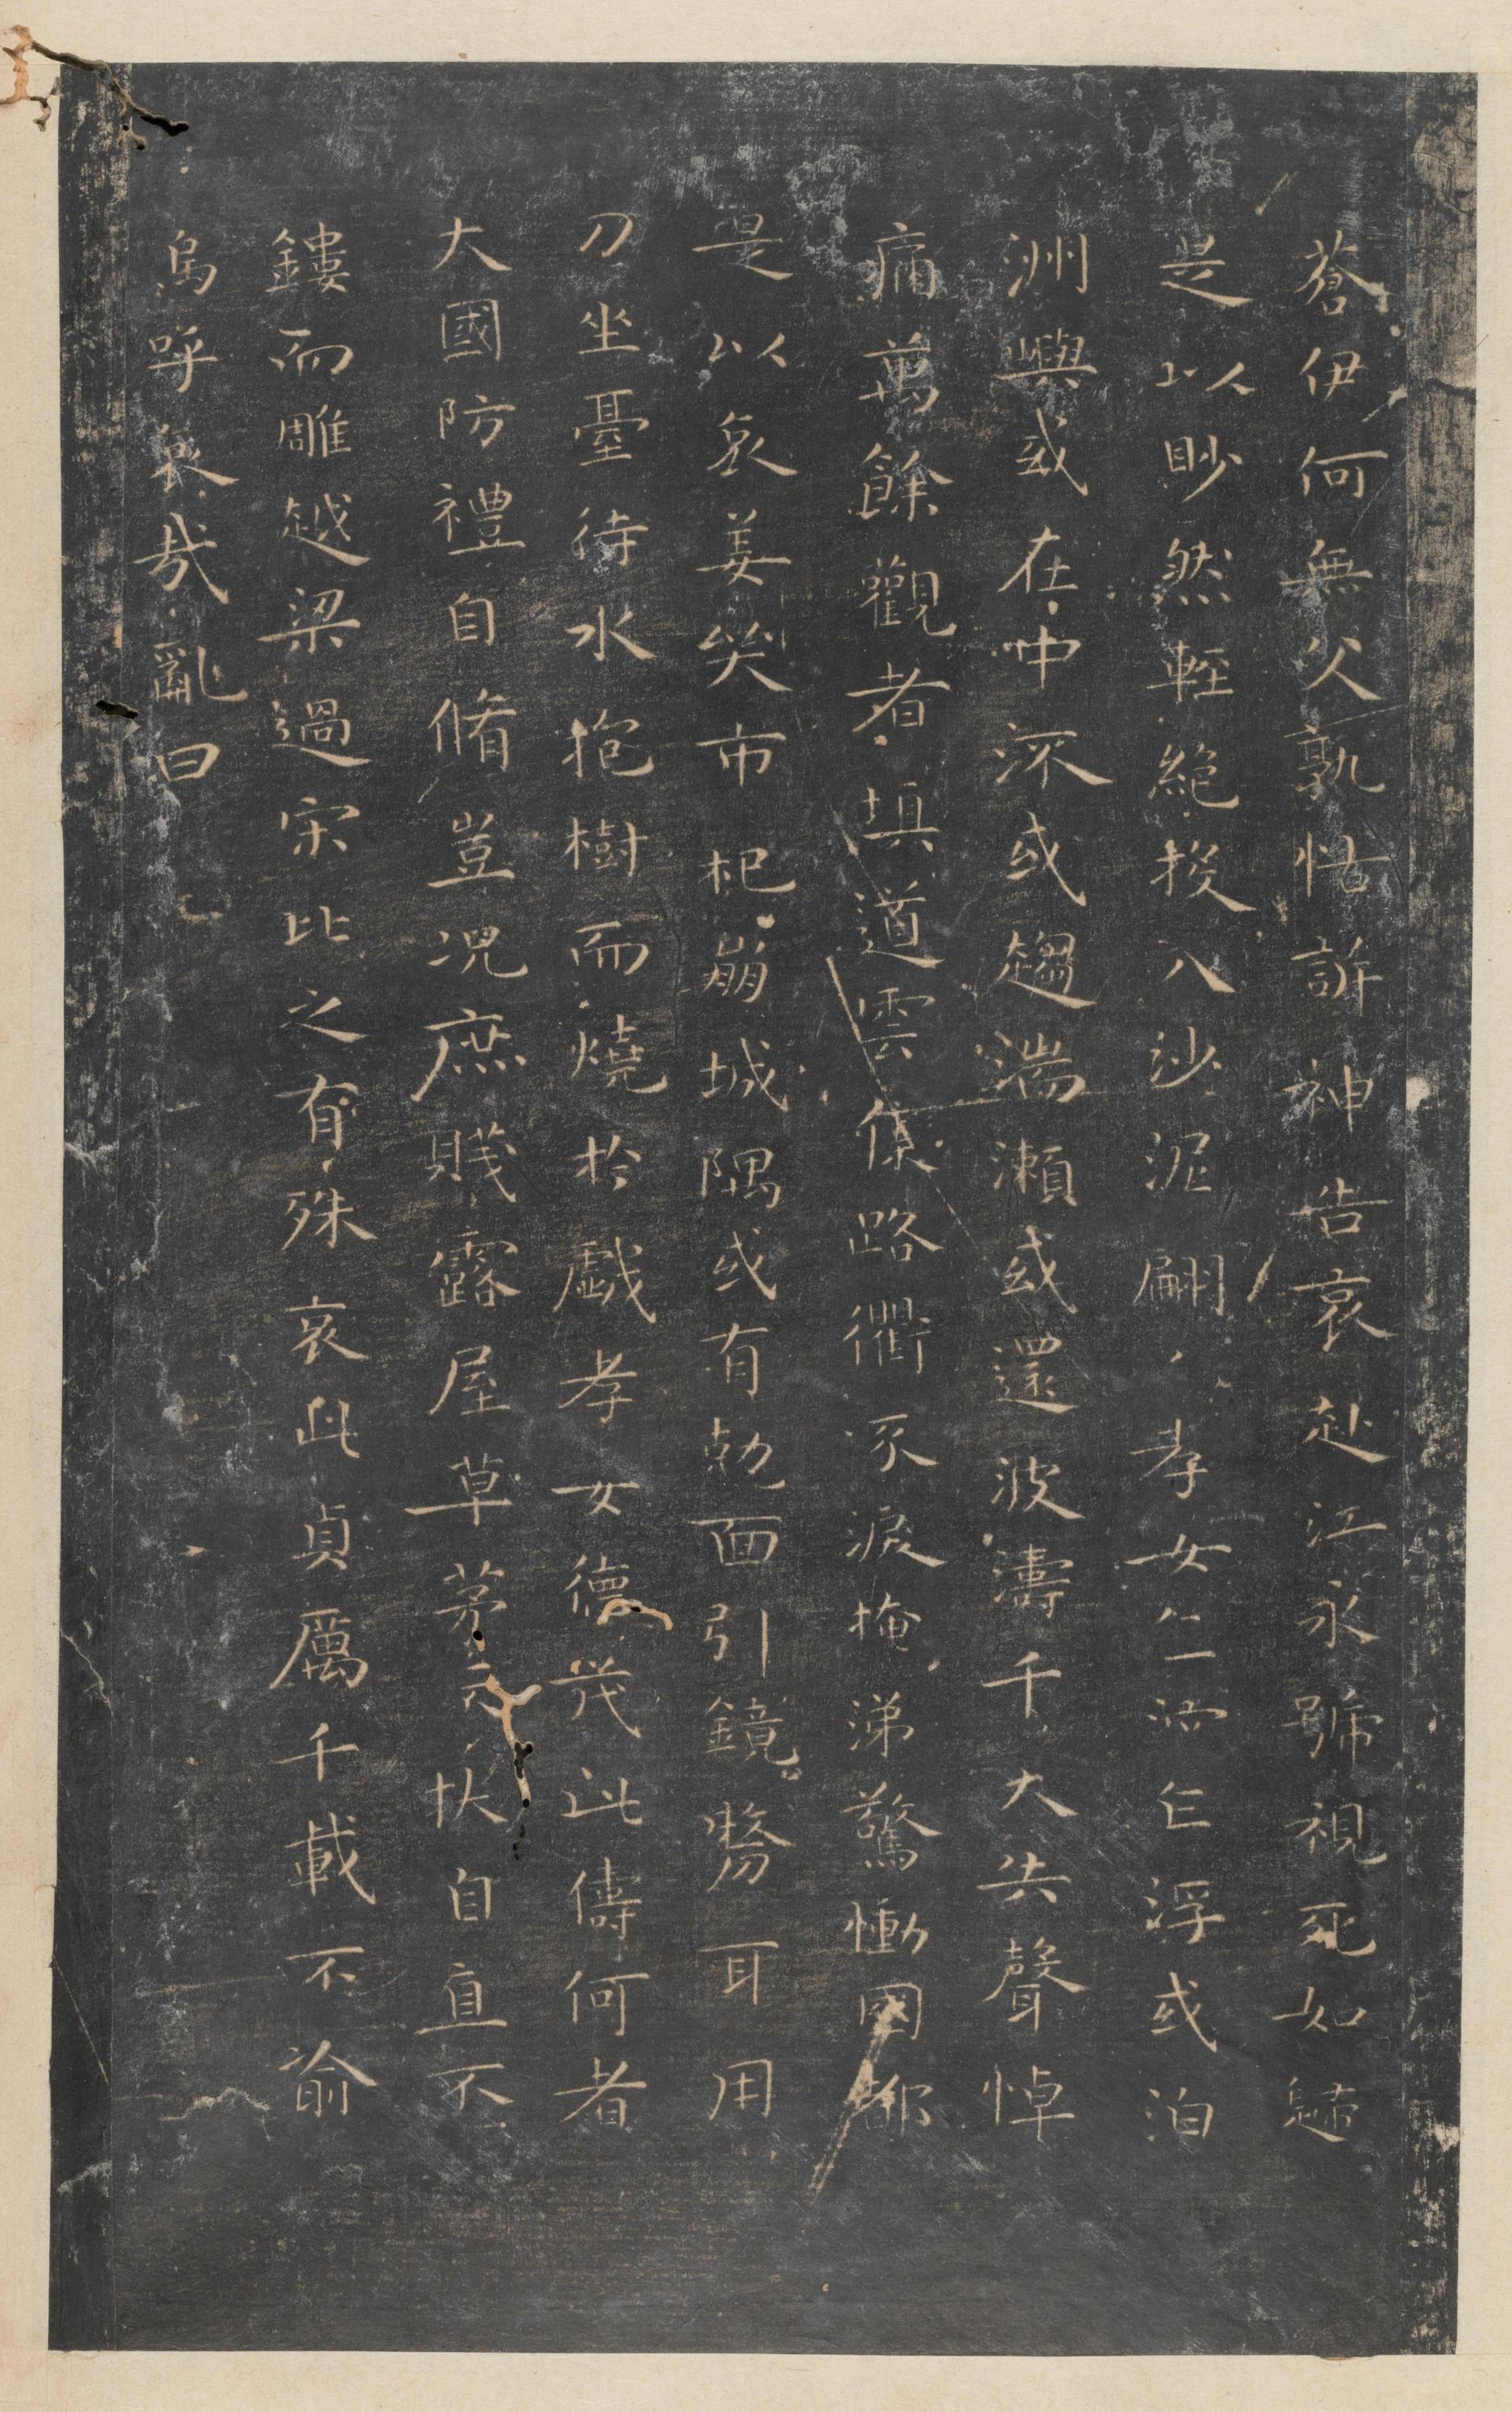 蒼伊何無父孰怙訴神告哀赴江永號視死如歸
是以眇然輕絕投入沙泥翩〻孝女乍沉乍浮或泊
洲嶼或在中流或趨湍瀨或還波濤千夫失聲悼
痛萬餘觀者填道雲集路衢流淚掩涕驚慟國都
是以哀姜哭市杞崩城隅或有尅面引鏡剺耳用
刀坐臺待水抱樹而燒於戲孝女德茂此儔何者
大國防禮自脩豈況庶賤露屋草茅不扶自直不
鏤而雕越梁過宋比之有殊哀此貞厲千載不渝
烏呼哀哉亂曰